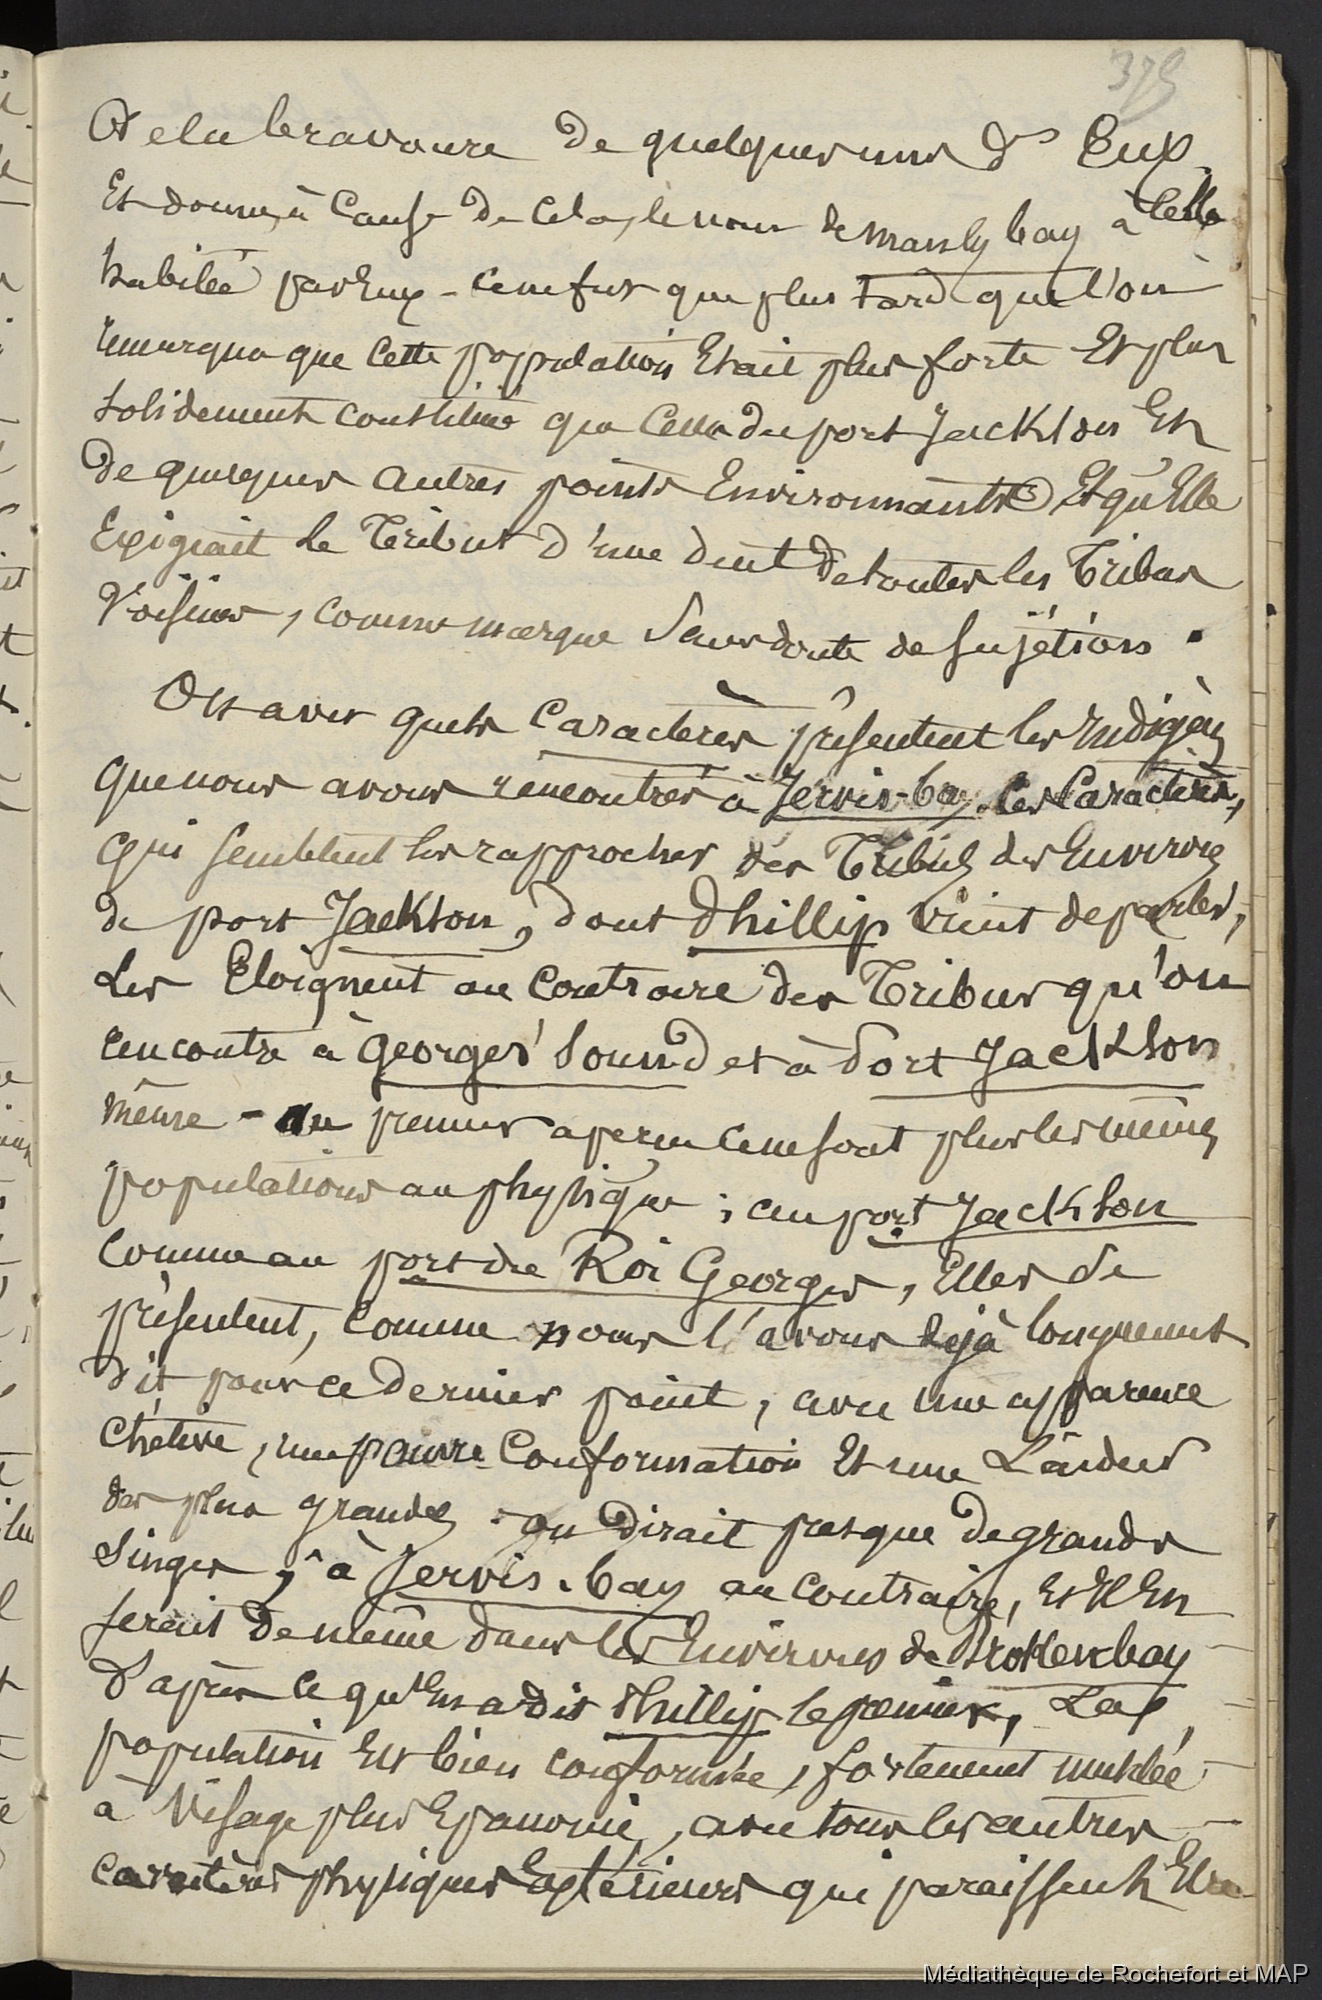 375
Et de la bravoure de quelques uns d's Eux
Et donna, à cause de cela, le nom de manly bay à celle
habitée par Eux - ce ne fut que plus tard que l'on
remarqua que cette population Etait plus forte Et plus
solidement constituée que celle du port Jackson Et
de quelques autres points Environnants Et qu'Elle
Exigeait le Tribut d'une dent de toutes les Tribus
Voisines, comme marque sans doute de sujétion.
On a vu quels caractères présentent les Indigènes
que nous avons rencontrés à Jervis-bay. Ces Caractères,
qui semblent les rapprocher des Tribus des Environs
de port Jackson, dont Phillip vient de parler,
Les Eloignent au contraire des Tribus qu'on
rencontre à Georges' Sound et à Port Jackson
même - au premier aperçu ce ne sont plus les mêmes
populations au physique ; au port Jackson
comme au port du Roi Georges, Elles se
présentent, comme nous l'avons déjà longuement
dit pour ce dernier point, avec une apparence
chétive, une pauvre conformation Et une Laideur
des plus grandes. on dirait presque de grands
Singes ; à Jervis-bay au contraire, Et Il En
serait de même dans les Environs de Broken bay
d'après ce qu'En a dit Phillip le premier, La
population Est bien conformée, fortement musclée
à Visage plus Epanoui, avec tous les autres
caractères physiques Extérieurs qui paraissent Etre
Médiathèque de Rochefort et MAP